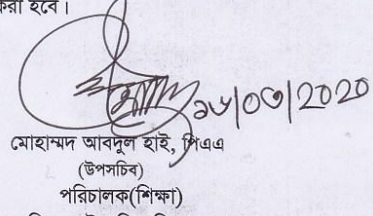 করা হবে।
১৮/০৩/2020
মোহাম্মদ আবদুল হাই, পিএএ
(উপসচিব)
পরিচালক(শিক্ষা)